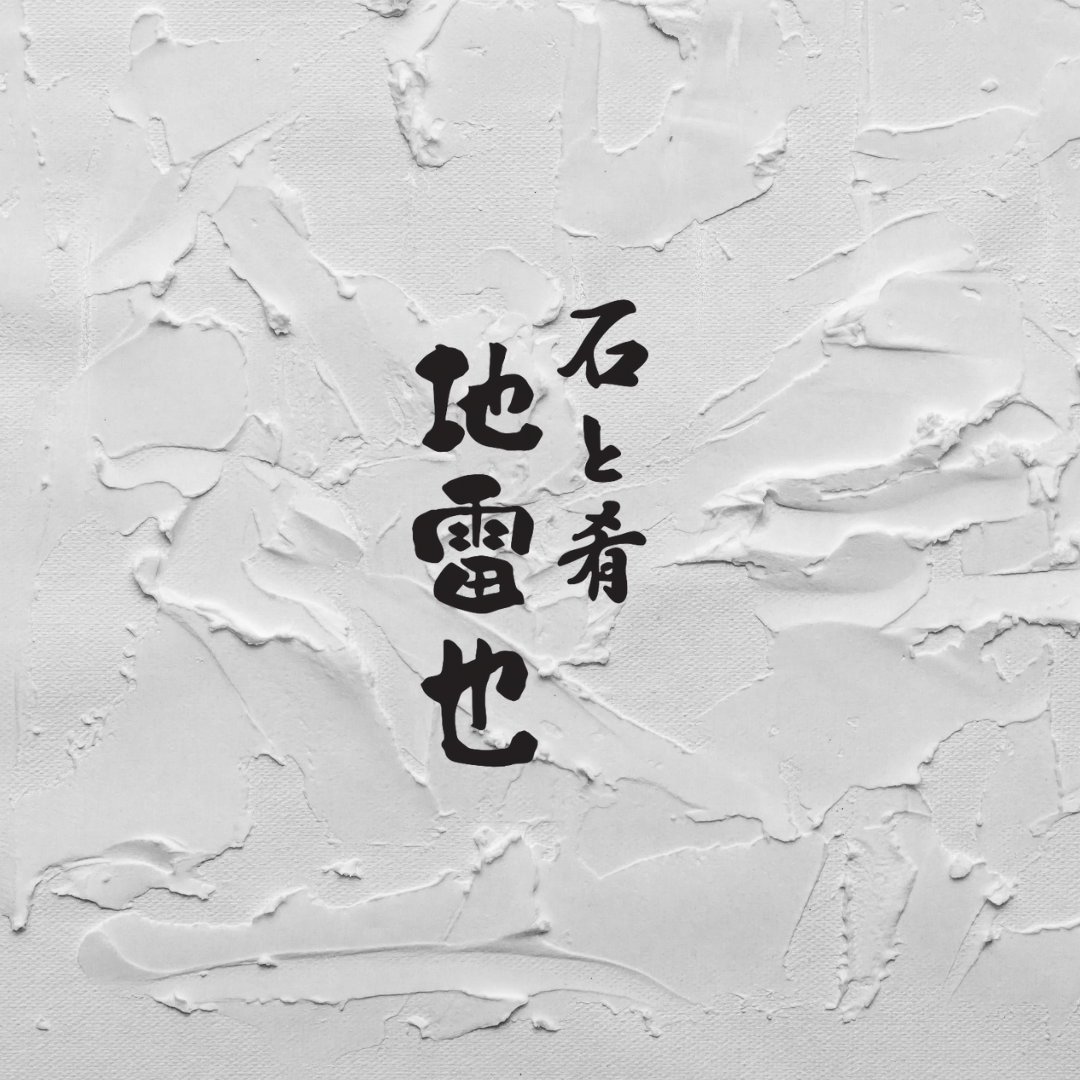 石と肴
地雷也